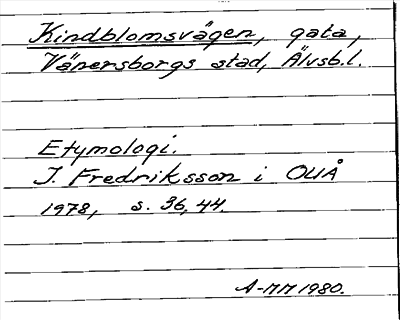 Kindblomsvägen, gata,
Vänersborgs stad, Älvsb.l.
Etymologi.
J. Fredriksson i OUÅ
1978, s. 36, 44.
A-MM 1980.